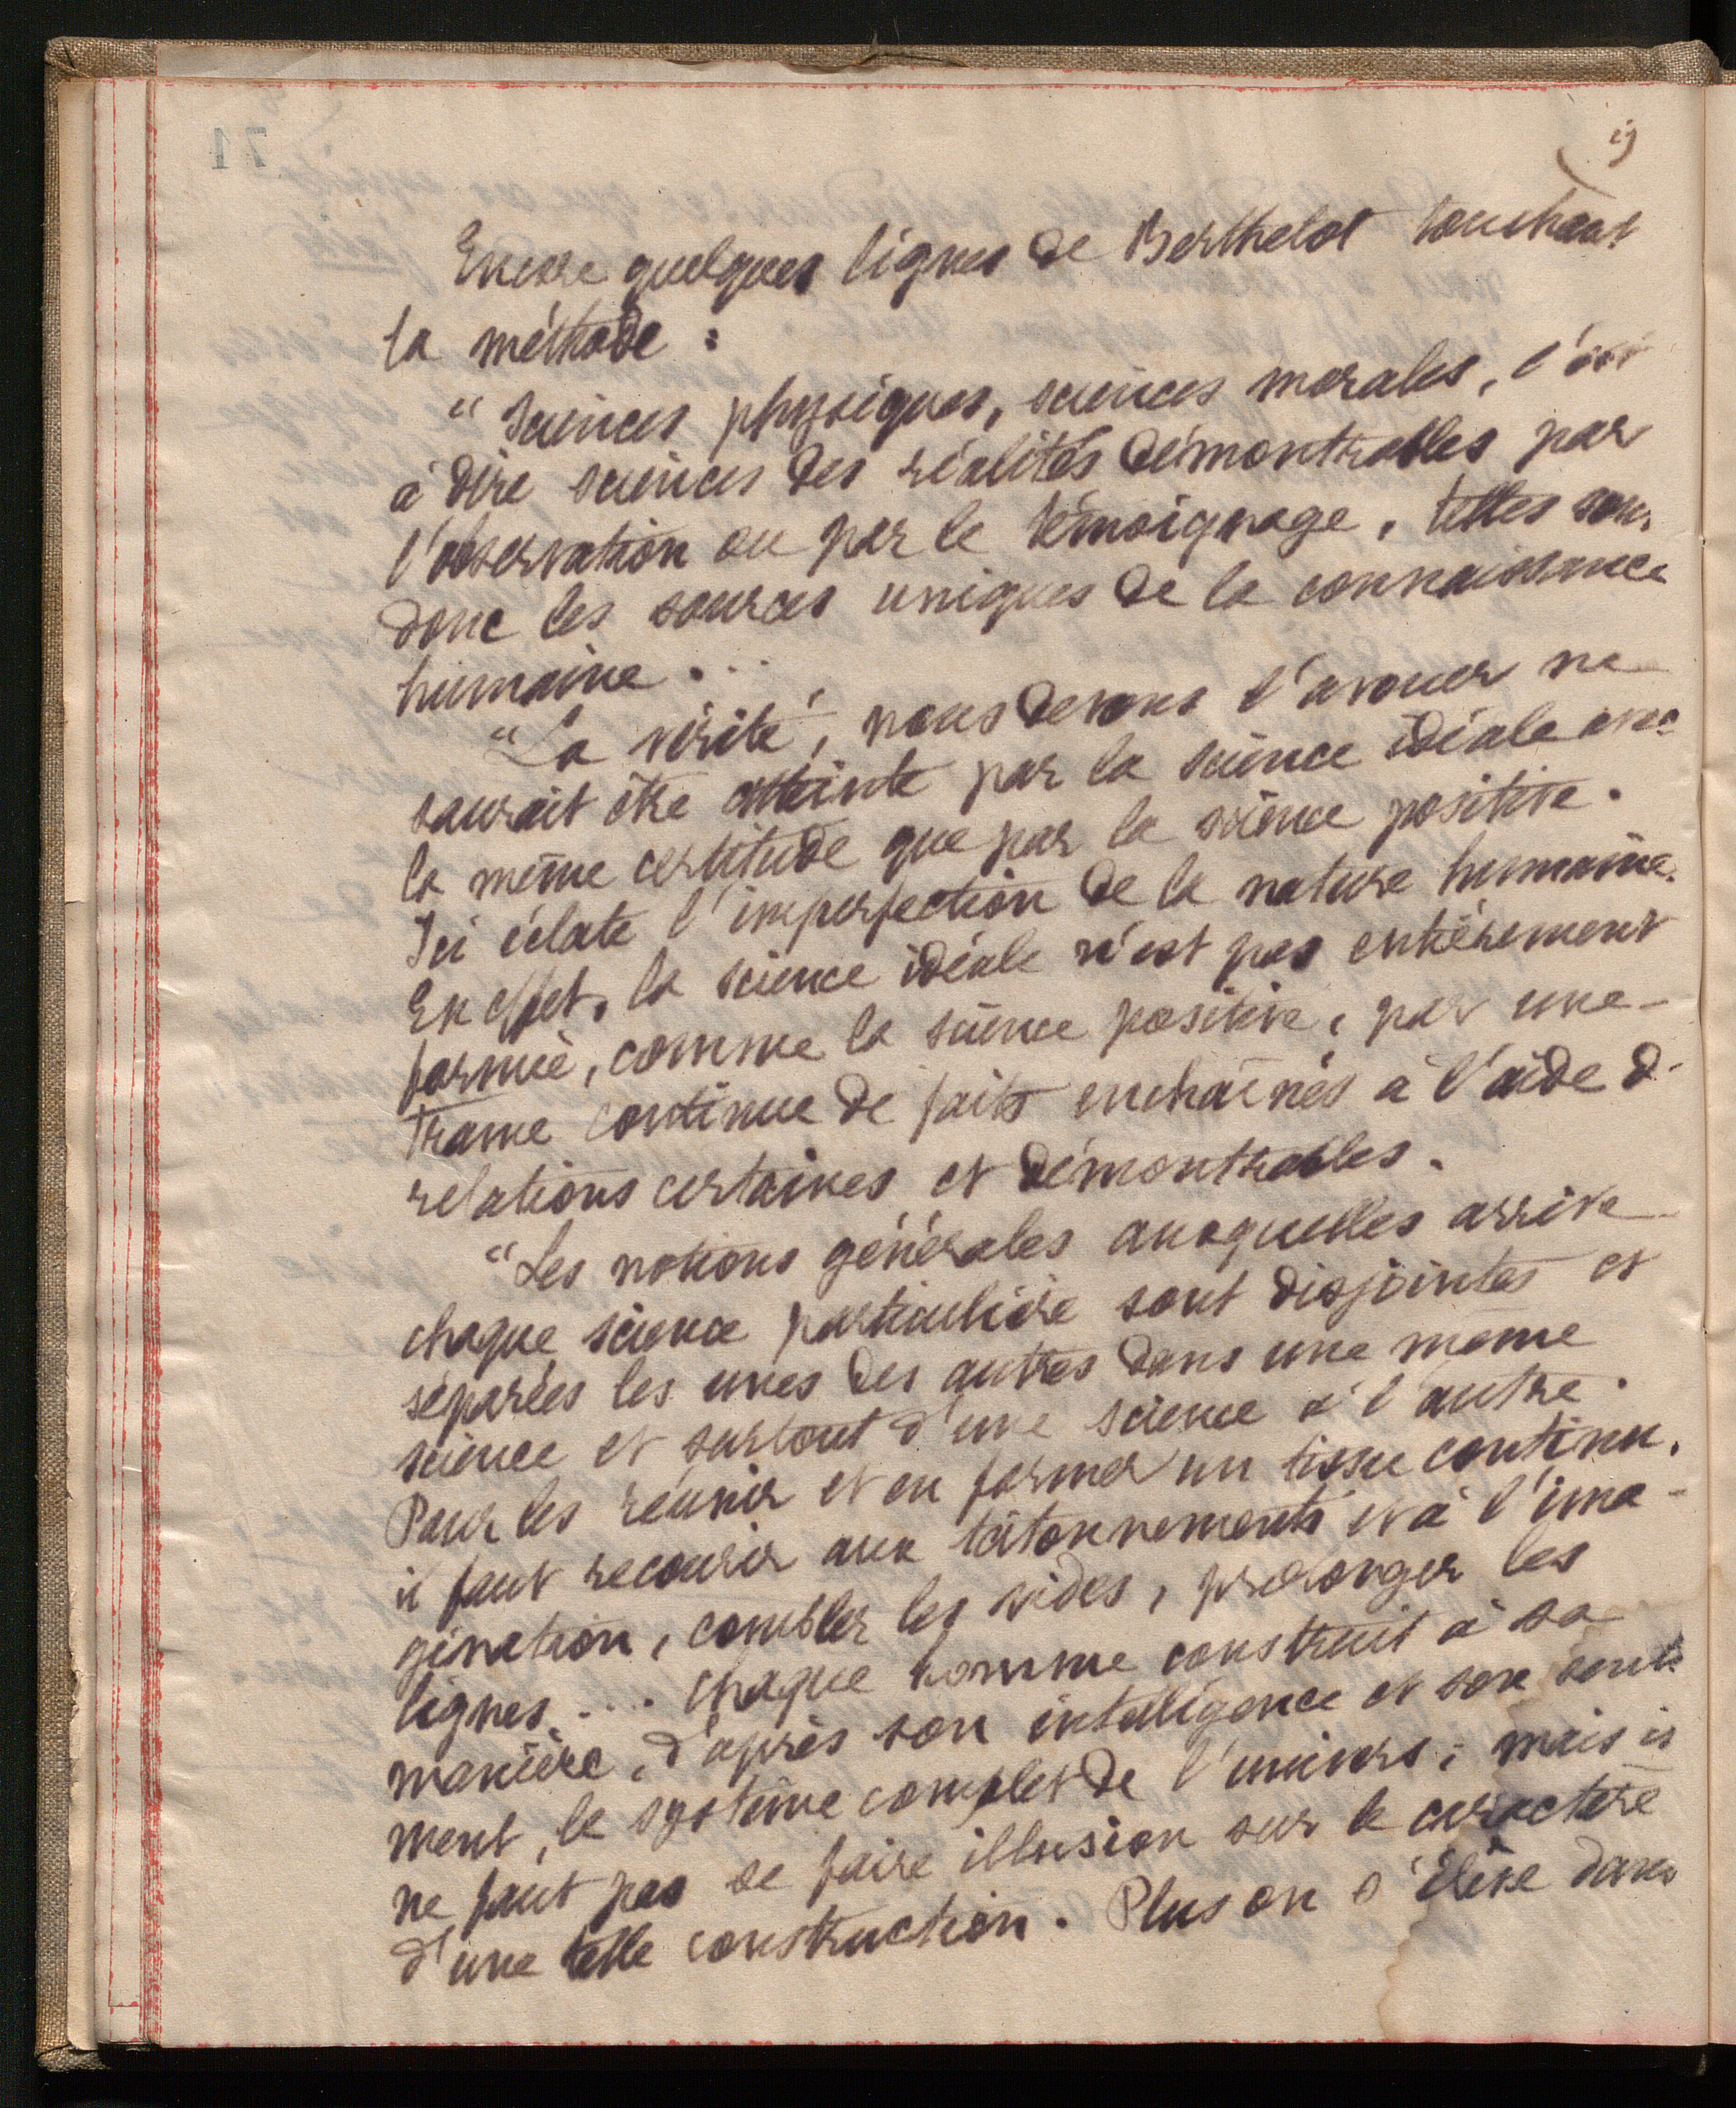 Encore quelques lignes de Berthelot touchant
la méthode :
"Sciences physiques, sciences morales, c'est
à dire sciences des réalités démontrables par
l'observation ou par le témoignage, telles sont
donc les sources uniques de la connaissance
humaine...
"La vérité, nous devons l'avouer ne
saurait être atteinte par la science idéale avec
la même certitude que par la science positive.
Ici éclate l'imperfection de la nature humaine.
En effet, la science idéale n'est pas entièrement
formée, comme la science positive, par une
trame continue de faits enchaînés à l'aide d
relations certaines et démontrables.
"Les notions générales auxquelles arrive
chaque science particulière sont disjointes et
séparées les unes des autres dans une même
science et surtout d'une science à l'autre.
Pour les réunir et en former un tissu continu,
il faut recourir aux tâtonnements et à l'ima-
gination, combler les vides, prolonger les
lignes.... chaque homme construit à sa
manière, d'après son intelligence et son senti
ment, le système complet de l'univers; mais il
ne faut pas se faire illusion sur le caractère
d'une telle construction. Plus on s'élève dans